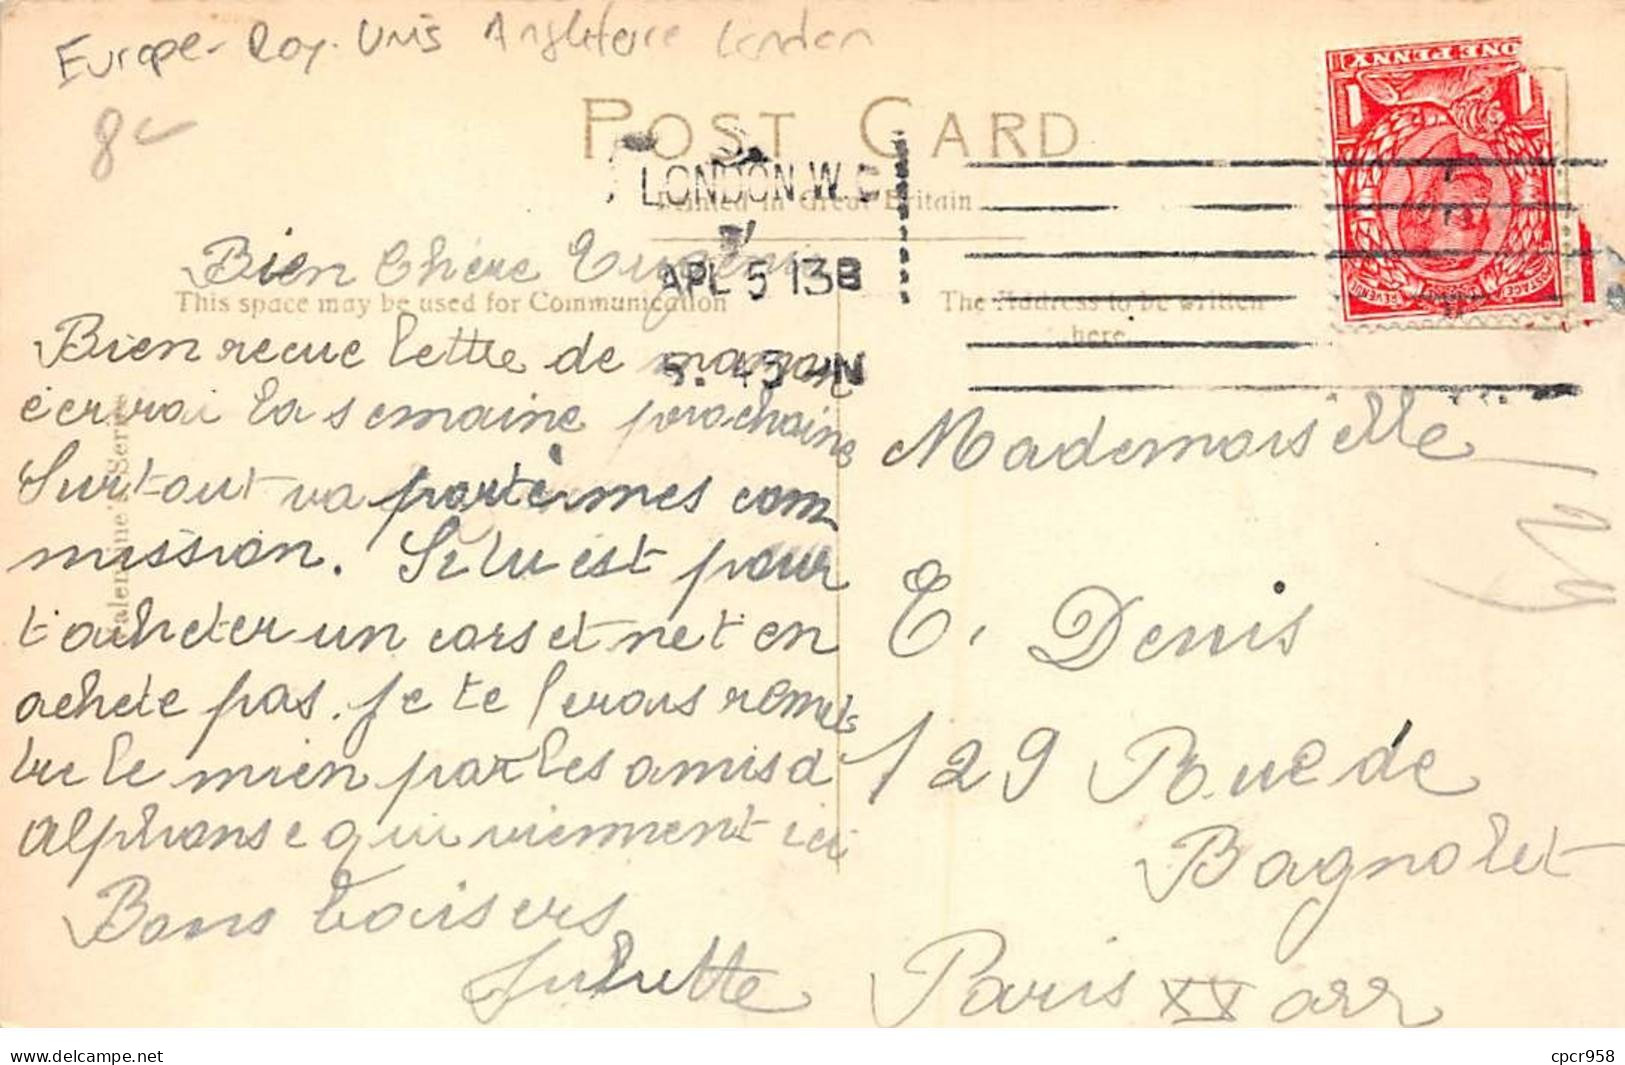 Europe - Roy. Unis Angleterre London
8
POST CARD
LONDON. W.C
Printed in Great Britain
APL 5 13
ONE PENNY
1 1
POSTAGE REVENUE
This space may be used for Communication
The Address to be written
here.
Valentine's Series
Bien Chére Eugénie
Bien recue lettre de maman
écrirai la semaine prochaine
Surtout va porter mes com
mission. Si tu est pour
t'acheter un corset ne t'en
achete pas. Je te ferais remet
tre le mien par les amis d
alphonse qui viennent ici
Bons baisers
Juliette
Mademoiselle
E. Denis
129 Rue de
Bagnolet
Paris XX arr
cpcr958